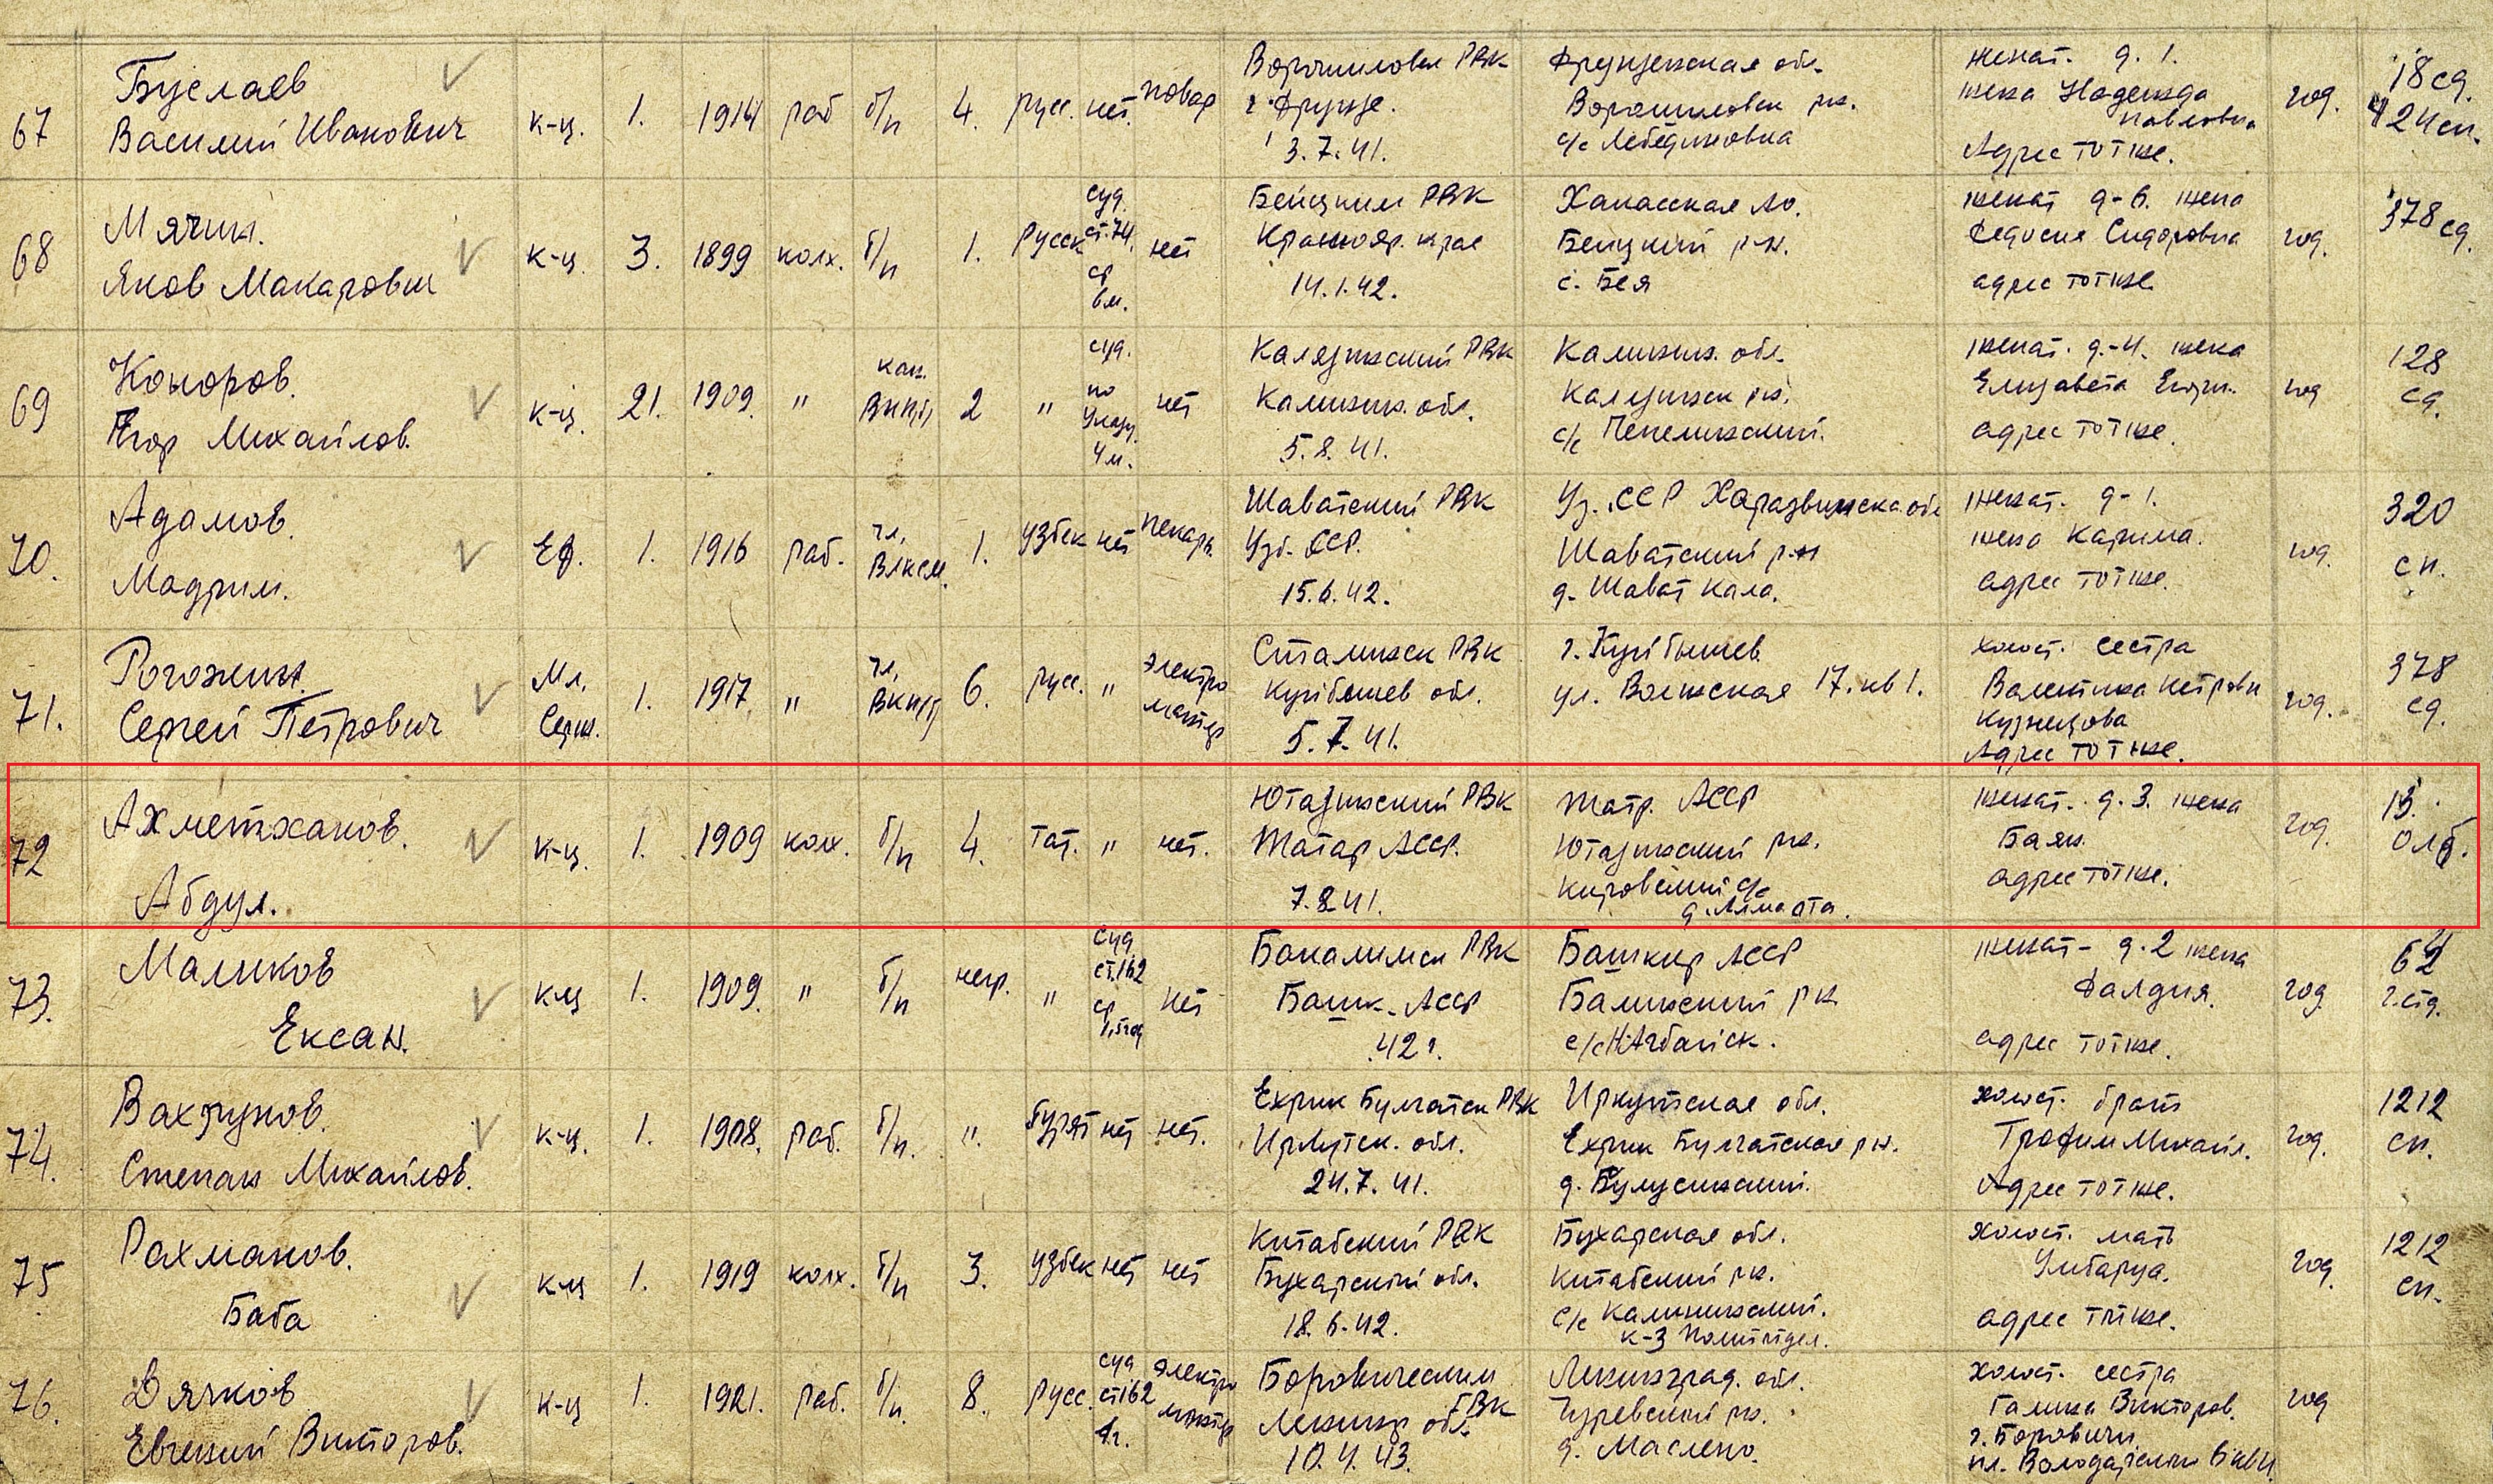 67 Буслаев Василий Иванович к-ц. 1. 1914 раб б/п 4. русс. нет. повар Ворошиловск РВК г. Фрунзе. 3.7.41. Фрунзенская обл. Ворошиловск рн. с/с Лебединовка женат. д. 1. жена Надежда Павловна Адрес тот же. год. 18 сд. 424 сп.
68 Мячин. Яков Макарович к-ц. 3. 1899 колх. б/п 1. Русск суд. ст. 74. ср 6 м. нет Бейским РВК Краснояр. края 14.1.42. Хакасская Ао. Бейский р-н. с. Бея женат д-6. жена Федосия Сидоровна адрес тот же. год. 378 сд.
69 Коноров. Егор Михайлов. к-ц. 21. 1909. " кан. ВКП/б 2 " суд. по Указу 4 м. нет Калязинский РВК Калинин. обл. 5.8.41. Калинин. обл. Калязинск рн. с/с женат. д.-4. жена Елизавета адрес тот же. год 128 сд.
70. Адамов. Мадрим. Еф. 1. 1916 раб. чл. ВЛКСМ. 1. узбек нет пекарь. Шаватский РВК Узб. ССР. 15.6.42. Уз. ССР обл Шаватский р-н д. Шават Кала. женат. д-1. жена Карима. адрес тот же. год. 320 сп.
71. Рогожин. Сергей Петрович Мл. Серж. 1. 1917 " чл. ВКП/б 6. русс. " электромонтер Сталинск РВК Куйбышев обл. 5.7.41. г. Куйбышев ул. Волжская 17. кв 1. холост. сестра Валентина Петровн Кузнецова Адрес тот же. год. 378 сд.
72 Ахметханов. Абдул. к-ц. 1. 1909 колх. б/п 4. тат. " нет. Ютазинский РВК Татар АССР. 7.8.41. Татр. АССР Ютазинский рн. Кировский с/с д. Алма ата. женат. д. 3. жена Баян. адрес тот же. год. 13. олб.
73. Маликов Ексан. к-ц 1. 1909. " б/п негр. " суд ст. 162 ср 1,5 год нет Бакалинск РВК Башк. АССР 42 г. Башкир АССР р н женат - д. 2 жена Фалдия. адрес тот же. год г. сд.
74. Вахрунов. Степан Михайлов. к-ц. 1. 1908. раб. б/п. ". бурят нет нет. Ехрик Булгатск РВК Иркутск. обл. 24.7.41. Иркутская обл. Ехрик Булгатская р н. д. холост. брат Трофим Михайл. Адрес тот же. год. 1212 сп.
75 Рахманов. Баба к-ц 1. 1919 колх. б/п 3. узбек нет нет Китабский РВК Бухарской обл. 18.6.42. Бухарская обл. Китабский рн. с/с Калининский. к-з Политотдел. холост. мать адрес тот же. год. 1212 сп.
76. Дячков Евгений Викторов. к-ц 1. 1921. раб. б/п. 8. русс. суд ст 162 1 г. электромонтер Боровическим ГВК Ленингр обл. 10.4.43. Ленинград. обл. рн. д. Маслено. холост. сестра Галина Викторов. г. Боровичи пл. Володарского год